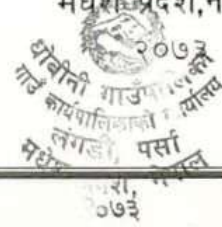 मधेश प्रदेश,न
२०७३
धोबीनी गाउँपालिका
गाउँ कार्यपालिकाको कार्यालय
लंगडी, पर्सा
मधेश प्रदेश, नेपाल
२०७३